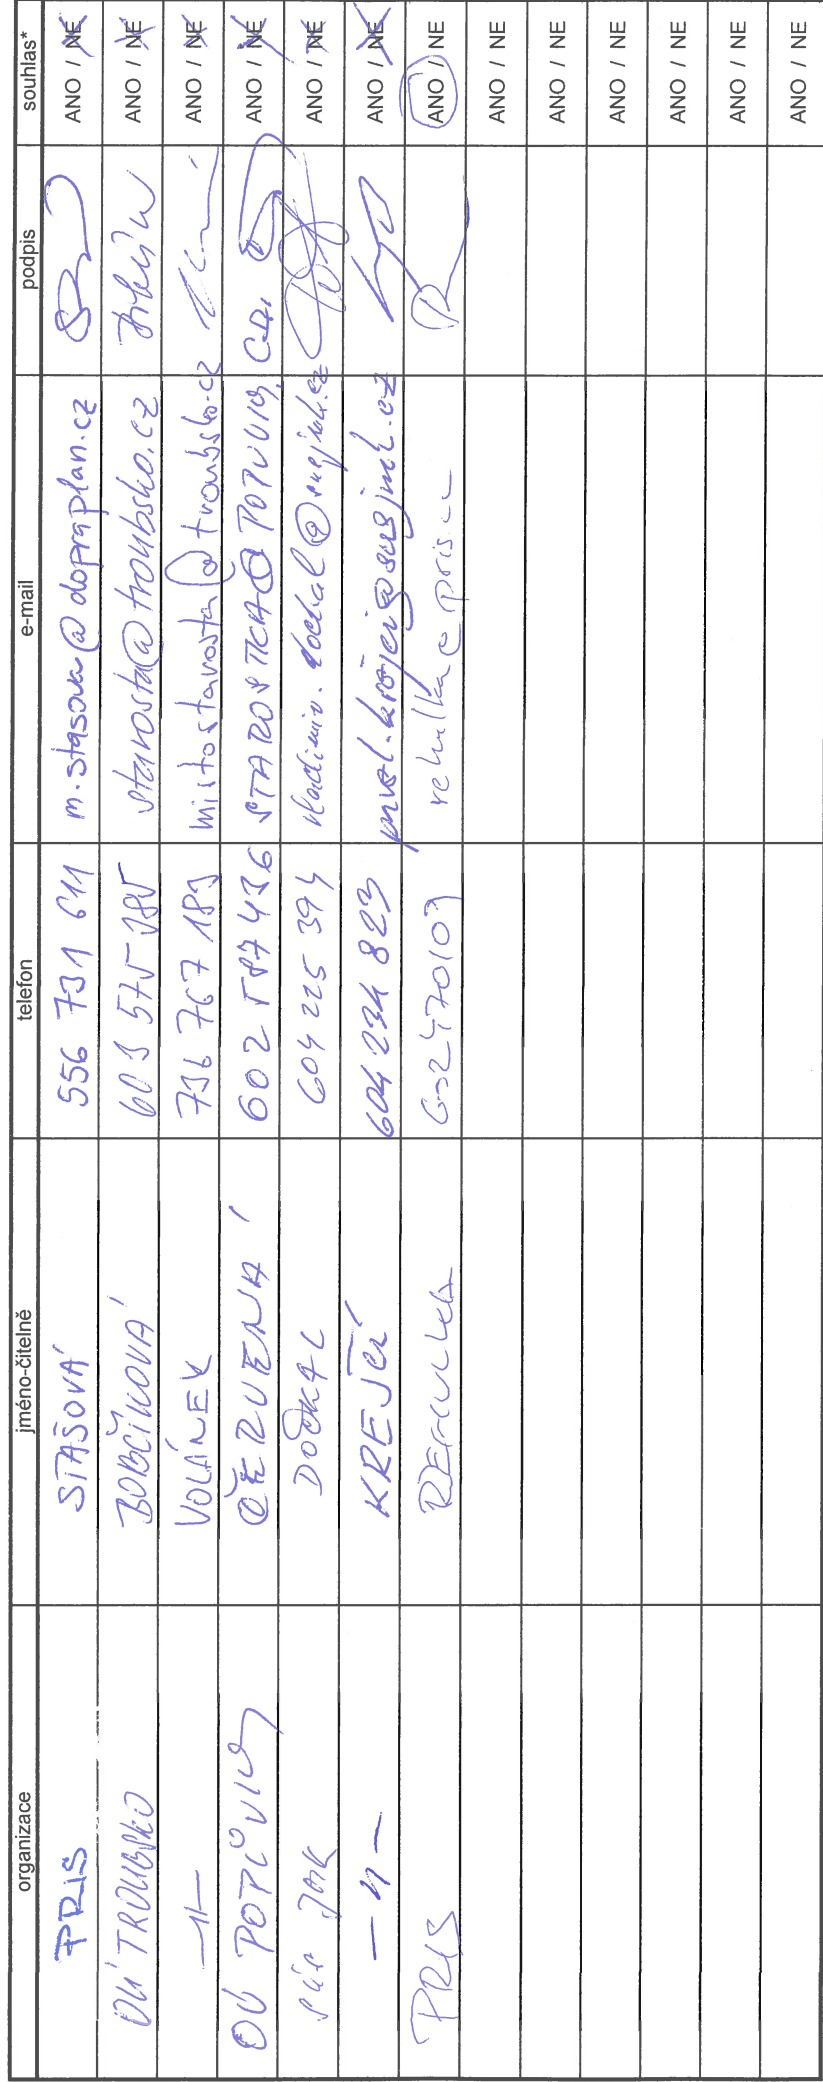 organizace jméno-čitelně telefon e-mail podpis souhlas*
PRIS STAŠOVÁ 556 731 611 m.stasova@dopraplan.cz ANO / NE
OÚ TROUBSKO BOBČÍKOVÁ 603 575 985 starosta@troubsko.cz ANO / NE
-11- VOLÁNEK 736 767 189 mistostarosta@troubsko.cz ANO / NE
OÚ POPŮVKY ČERVENÁ 602 587 436 STAROSTKA@POPUVKY.CZ ANO / NE
SÚS JMK DOČKAL 604 225 394 vladimir.dockal@susjmk.cz ANO / NE
-11- KREJČÍ 604 234 823 pavel.krejci@susjmk.cz ANO / NE
PRIS ŘEHULKA 602470109 rehulka@pris.cz ANO / NE
ANO / NE
ANO / NE
ANO / NE
ANO / NE
ANO / NE
ANO / NE